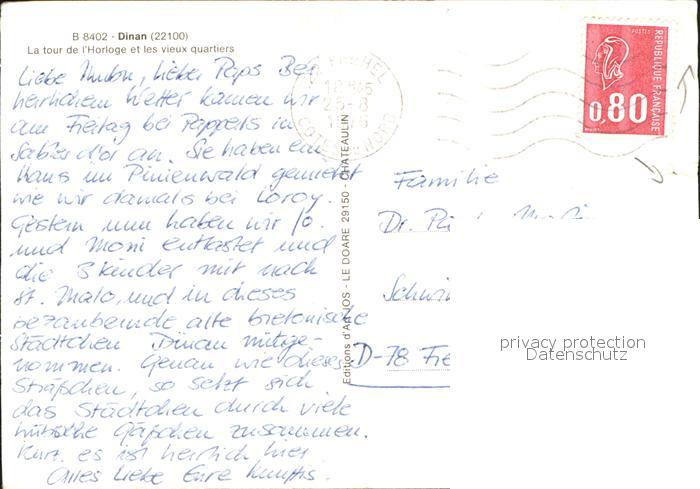 B 8402 - Dinan (22100)
La tour de l'Horloge et les vieux quartiers
Liebe Mutti, lieber Paps Bei
herrlichem Wetter kamen wir
am Freitag bei Pepperls in
Sables d'or an. Sie haben ein
Haus im Pinienwald gemietet
wie wir damals bei Loroy.
Gestern nun haben wir Jo.
und Moni entlastet und
die 3 Kinder mit nach
St. Malo, und in dieses
bezaubernde alte bretonische
Städtchen Dinan mitge-
nommen. Genau wie dieses
Sträßchen, so setzt sich
das Städtchen durch viele
hübsche Gäßchen zusammen.
Kurz, es ist herrlich hier
Alles Liebe Eure
Editions d'Art JOS - LE DOARE 29150 - CHATEAULIN
25-8
POSTES
REPUBLIQUE FRANÇAISE
0,80
Familie
Dr.
D-78 Fre
privacy protection
Datenschutz